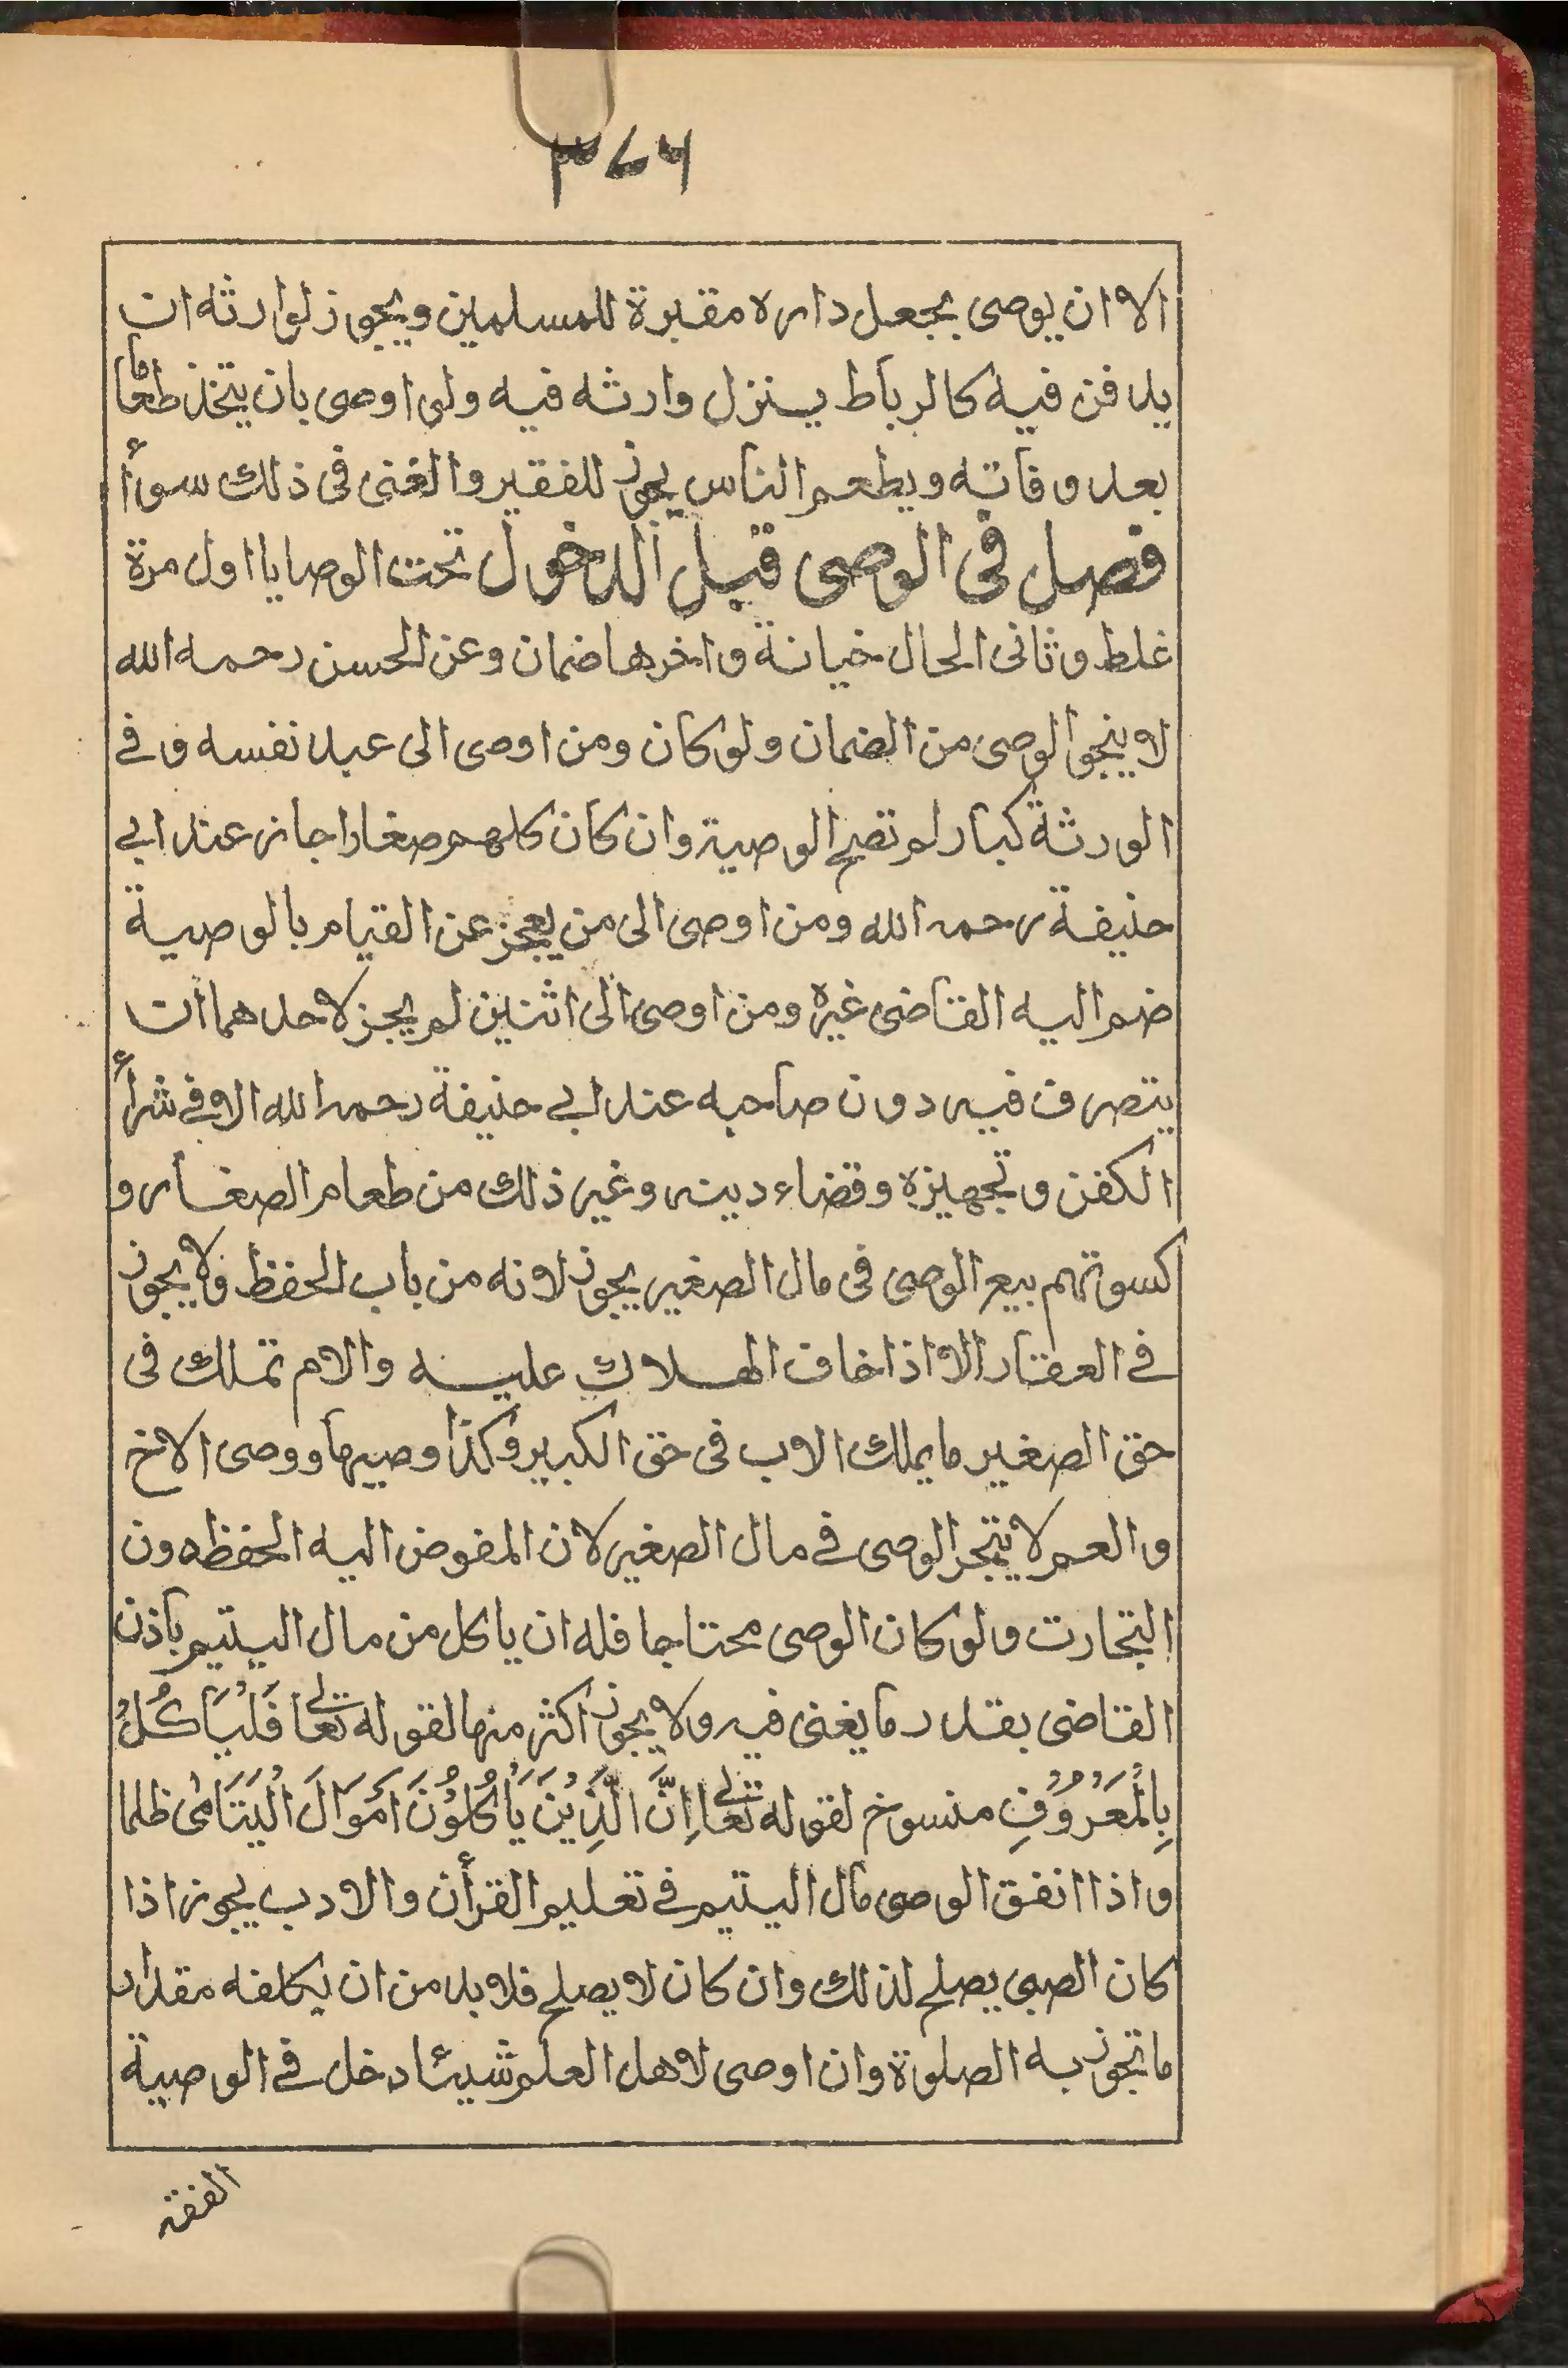 ٣٧٦
الا ان يوصى بجعل داره مقبرة للمسلمين ويجوز لوارثه ان
يدفن فيه كالرباط ينزل وارثه فيه ولو اوصى بان يتخذ طعاما
بعد وفاته ويطعم الناس يجوز للفقير والغنى فى ذلك سوأ
فصل فى الوصى قيل الدخول تحت الوصايا اول مرة
غلط وثانى الحال خيانة واخرها ضمان وعن الحسن رحمه الله
لا ينجو الوصى من الضمان ولو كان ومن اوصى الى عبد نفسه وفے
الورثة كبار لم تصح الوصية وان كان كلهم صغارا جاز عند ابے
حنيفة رحمه الله ومن اوصى الى من يعجز عن القيام بالوصية
ضم اليه القاضى غيره ومن اوصى الى اثنين لم يجز لاحدهما ان
يتصرف فيه دون صاحبه عند ابے حنيفة رحمه الله الا فے شرأ
الكفن وتجهيزه وقضاء دينه وغير ذلك من طعام الصغار و
كسوتهم بيع الوصى فى مال الصغير يجوز لانه من باب الحفظ ولا يجوز
فے العقار الا اذا خاف الهلاك عليه والام تملك فى
حق الصغير ما يملك الاب فى حق الكبير وكذا وصيها ووصى الاخ
والعم لا يتجر الوصى فے مال الصغير لان المفوض اليه الحفظ دون
التجارت ولو كان الوصى محتاجا فله ان ياكل من مال اليتيم باذن
القاضى بقدر ما يغنى فيه ولا يجوز اكثر منها لقوله تعالے فَلْيَأْكُلْ
بِالْمَعْرُوْفِ منسوخ لقوله تعالے اِنَّ الَّذِيْنَ يَأْكُلُوْنَ اَمْوَالَ الْيَتَامٰى ظلما
واذا انفق الوصى مال اليتيم فے تعليم القرأن والادب يجوز اذا
كان الصبى يصلح لذلك وان كان لا يصلح فلا بد من ان يكلفه مقدار
ما تجوز به الصلوة وان اوصى لاهل العلم شيئا دخل فے الوصية
الفقه